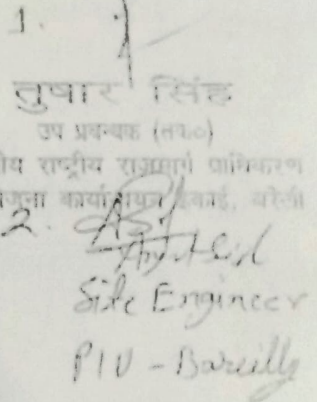 1.
तुषार सिंह
उप प्रबन्धक (तक०)
ीय राष्ट्रीय राजमार्ग प्राधिकरण
जना कार्यान्वयन इकाई, बरेली
2.
Site Engineer
PIU - Bareilly